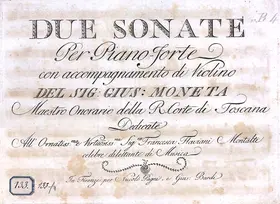 DUE SONATE
Per Piano-forte
con accompagnamento di Violino
DEL SIG. GIUS: MONETA
Maestro Onorario della R. Corte di Toscana
Dedicate
All' Ornatiss. e Virtuosiss. Sig. Francesco Flaviani Montalti
celebre dilettante di Musica
In Firenze per Niccolò Pagni e Gius. Bardi